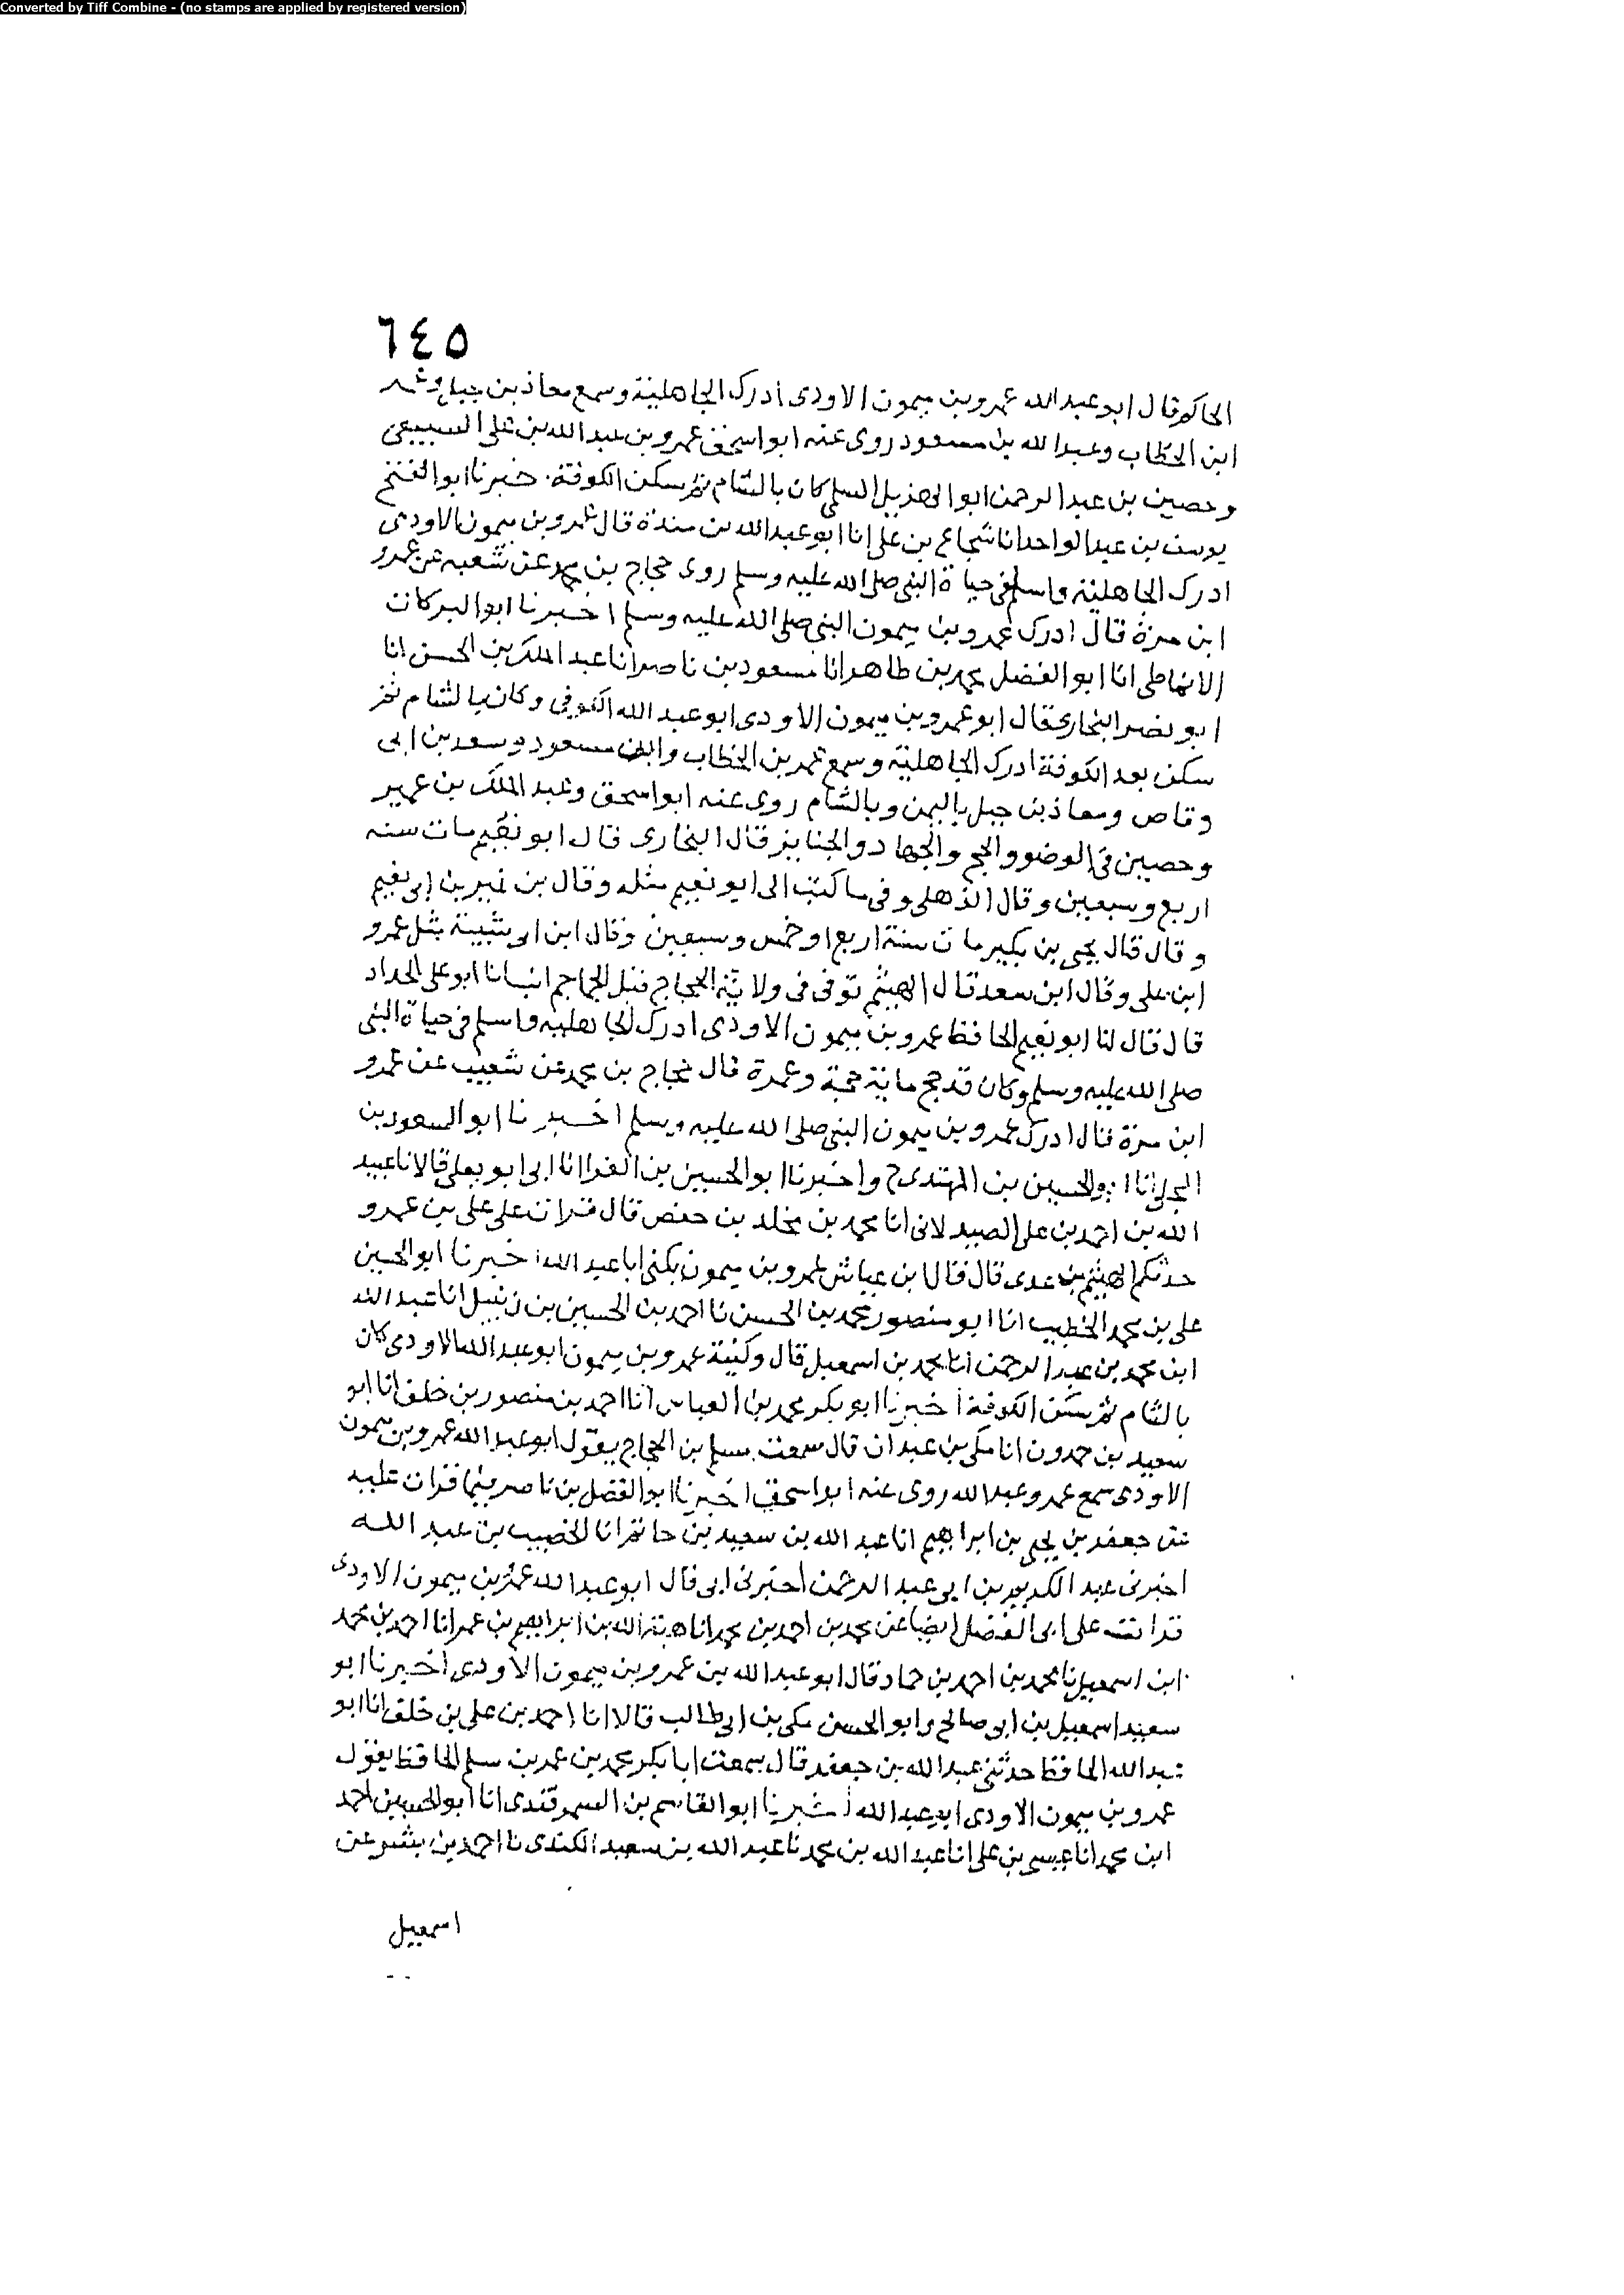 Converted by Tiff Combine - (no stamps are applied by registered version)
٦٤٥
الحاكم قال ابو عبد الله عمرو بن ميمون الاودى ادرك الجاهلية وسمع معاذ بن جبل وعمر
ابن الخطاب وعبد الله بن مسعود روى عنه ابو اسحق عمرو بن عبد الله بن على السبيعى
وحصين بن عبد الرحمن ابو الهذيل السلمى كان بالشام ثم سكن الكوفة. خبرنا ابو الفتح
يوسف بن عبد الواحد انا شجاع بن على انا ابو عبد الله بن مندة قال عمرو بن ميمون الاودى
ادرك الجاهلية واسلم فى حياة النبى صلى الله عليه وسلم روى حجاج بن محمد عن شعبه عن عمرو
ابن مرة قال ادرك عمرو بن ميمون النبى صلى الله عليه وسلم اخبرنا ابو البركات
الانماطى انا ابو الفضل محمد بن طاهر انا مسعود بن ناصر انا عبد الملك بن الحسن انا
ابو نصر البخارى قال ابو عمرو بن ميمون الاودى ابو عبد الله الكوفى وكان بالشام ثم
سكن بعد الكوفة ادرك الجاهلية وسمع عمر بن الخطاب وابن مسعود وسعد بن ابى
وقاص ومعاذ بن جبل باليمن وبالشام روى عنه ابو اسحق وعبد الملك بن عمير
وحصين فى الوضو والحج والجهاد والجنايز قال البخارى قال ابو نعيم مات سنه
اربع وسبعين وقال الذهلى وفى ما كتب الى ابو نعيم مثله وقال بن نمير بن ابى نعيم
وقال قال يحيى بن بكير مات سنة اربع او خمس وسبعين وقال ابن ابى شيبة مثل عمرو
ابن على وقال ابن سعد قال الهيثم توفى فى ولاية الحجاج قبل الجماجم انبانا ابو على الحداد
قال قال لنا ابو نعيم الحافظ عمرو بن ميمون الاودى ادرك الجاهلية واسلم فى حياة النبى
صلى الله عليه وسلم وكان قد حج ماية حجة وعمرة قال حجاج بن محمد عن شعيب عن عمرو
ابن مرة قال ادرك عمرو بن ميمون النبى صلى الله عليه وسلم اخبرنا ابو السعود بن
المجلى انا ابو الحسين بن المهتدى ح واخبرنا ابو الحسين بن الفرا انا ابى ابو يعلى قالا نا عبيد
الله بن احمد بن على الصيدلانى انا محمد بن مخلد بن حفص قال قرات على على بن عمرو
حدثكم الهيثم بن عدى قال قال ابن عياش عمرو بن ميمون يكنى ابا عبد الله اخبرنا ابو الحسين
على بن محمد الخطيب انا ابو منصور محمد بن الحسن نا احمد بن الحسين بن زنبيل انا عبد الله
ابن محمد بن عبد الرحمن انا محمد بن اسمعيل قال وكنية عمرو بن ميمون ابو عبد الله الاودى كان
بالشام ثم سكن الكوفة اخبرنا ابو بكر محمد بن العباس انا احمد بن منصور بن خلف انا ابو
سعيد بن حمدون انا مكى بن عبدان قال سمعت مسلم بن الحجاج يقول ابو عبد الله عمرو بن ميمون
الاودى سمع عمرو عبد الله روى عنه ابو اسحق اخبرنا ابو الفضل بن ناصر بينما قرات عليه
عن جعفر بن يحيى بن ابراهيم انا عبد الله بن سعيد بن حاتم انا الخصيب بن عبد الله
اخبرنى عبد الكريم بن ابى عبد الرحمن اخبرنى ابى قال ابو عبد الله عمرو بن ميمون الاودى
قرات على ابى الفضل ايضا عن محمد بن احمد بن محمد انا هبة الله بن ابراهيم بن عمر انا احمد بن محمد
ابن اسمعيل نا محمد بن احمد بن حماد قال ابو عبد الله بن عمرو بن ميمون الاودى اخبرنا ابو
سعيد اسمعيل بن ابى صالح وابو الحسن مكى بن ابى طالب قالا انا احمد بن على بن خلف انا ابو
عبد الله الحافظ حدثنى عبد الله بن جعفر قال سمعت ابا بكر محمد بن عمر بن سلم الحافظ يقول
عمرو بن ميمون الاودى ابو عبد الله اخبرنا ابو القاسم بن السمرقندى انا ابو الحسين احمد
ابن محمد انا عيسى بن على انا عبد الله بن محمد نا عبد الله بن سعيد الكندى نا احمد بن بشير عن
اسمعيل